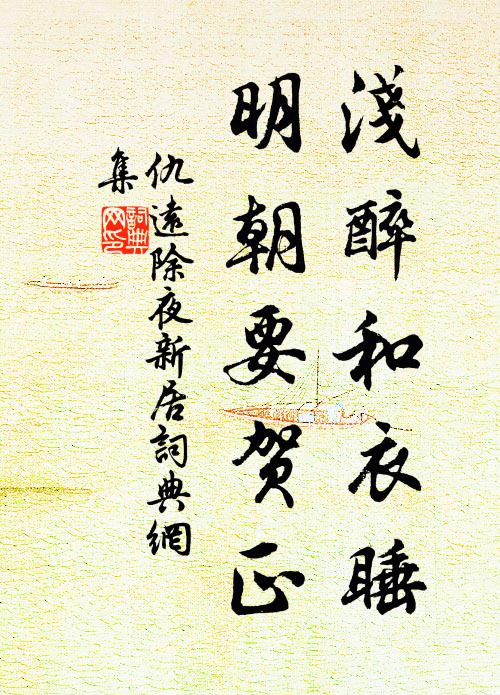 淺醉和衣睡
明朝要贺正
仇遠除夜新居詞典網
集
詞典
网印